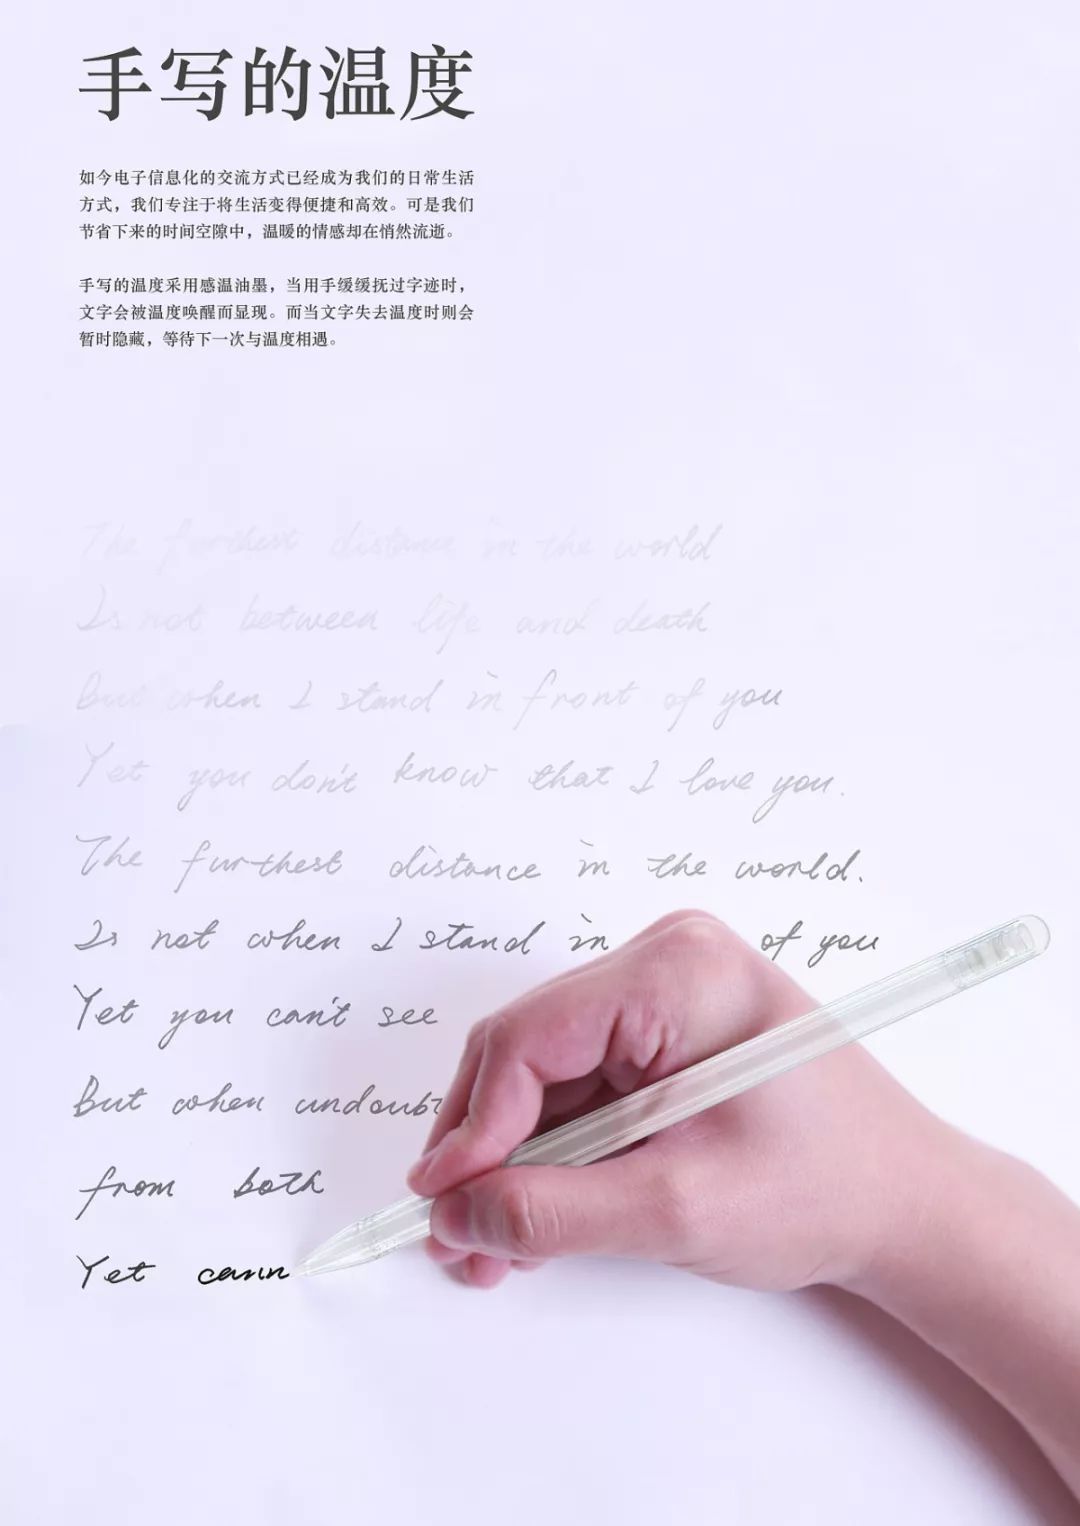 手写的温度
如今电子信息化的交流方式已经成为我们的日常生活
方式，我们专注于将生活变得便捷和高效。可是我们
节省下来的时间空隙中，温暖的情感却在悄然流逝。
手写的温度采用感温油墨，当用手缓缓抚过字迹时，
文字会被温度唤醒而显现。而当文字失去温度时则会
暂时隐藏，等待下一次与温度相遇。
The furthest distance in the world
Is not between life and death
But when I stand in front of you
Yet you don't know that I love you.
The furthest distance in the world.
Is not when I stand in of you
Yet you can't see
But when undoubt
from both
Yet cann